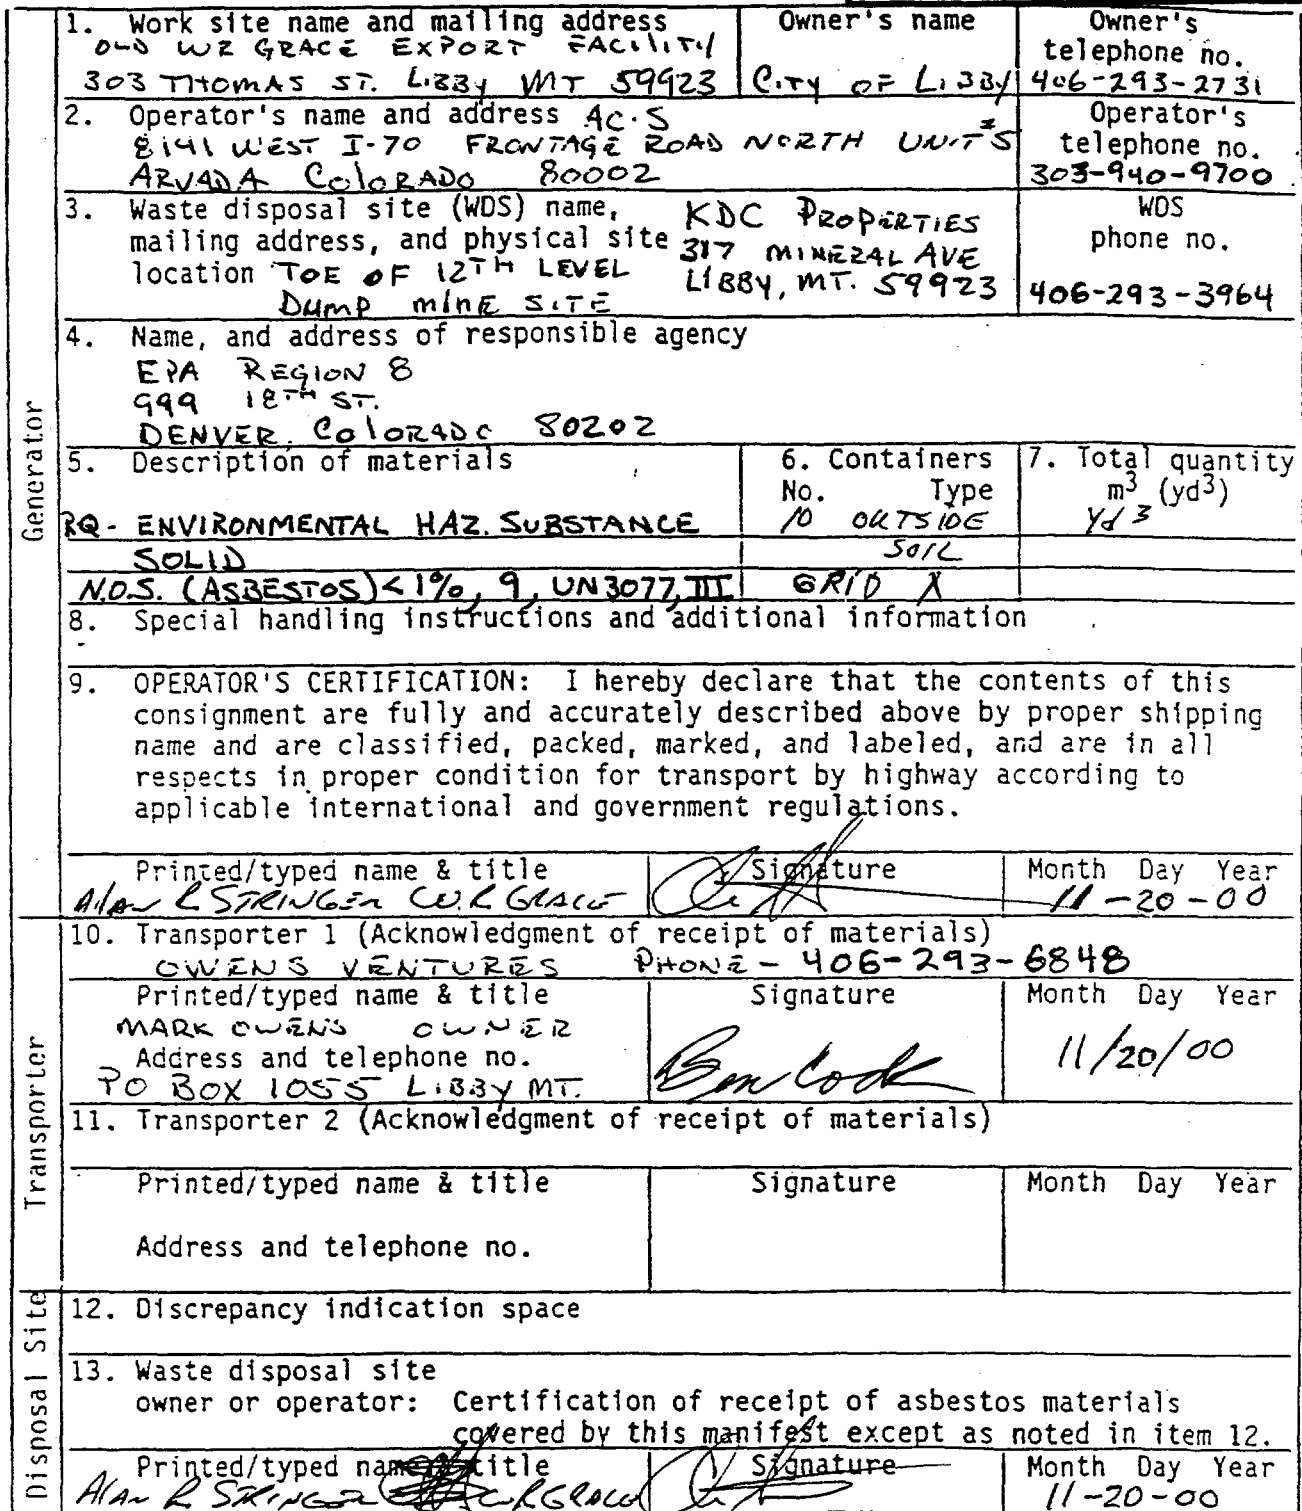 1. Work site name and mailing address
OLD WR GRACE EXPORT FACILITY
303 THOMAS ST. LIBBY MT 59923
Owner's name
CITY OF LIBBY
Owner's
telephone no.
406-293-2731
2. Operator's name and address AC.S
8141 WEST I-70 FRONTAGE ROAD NORTH UNIT #5
ARVADA COLORADO 80002
Operator's
telephone no.
303-940-9700
3. Waste disposal site (WDS) name,
mailing address, and physical site
location TOE OF 12TH LEVEL
DUMP MINE SITE
KDC PROPERTIES
317 MINERAL AVE
LIBBY, MT. 59923
WDS
phone no.
406-293-3964
4. Name, and address of responsible agency
EPA REGION 8
999 18TH ST.
DENVER. COLORADO 80202
Generator
5. Description of materials
RQ - ENVIRONMENTAL HAZ. SUBSTANCE
SOLID
N.O.S. (ASBESTOS) < 1%, 9, UN3077, III
6. Containers
No. Type
10 OUTSIDE
SOIL
GRID X
7. Total quantity
m3 (yd3)
yd3
8. Special handling instructions and additional information
9. OPERATOR'S CERTIFICATION: I hereby declare that the contents of this
consignment are fully and accurately described above by proper shipping
name and are classified, packed, marked, and labeled, and are in all
respects in proper condition for transport by highway according to
applicable international and government regulations.
Printed/typed name & title
Alan R STRINGER W.R GRACE
Signature
Month Day Year
11-20-00
Transporter
10. Transporter 1 (Acknowledgment of receipt of materials)
OWENS VENTURES PHONE - 406-293-6848
Printed/typed name & title
MARK OWENS OWNER
Address and telephone no.
PO BOX 1055 LIBBY MT.
Signature
Ben Cook
Month Day Year
11/20/00
11. Transporter 2 (Acknowledgment of receipt of materials)
Printed/typed name & title
Signature
Month Day Year
Address and telephone no.
Disposal Site
12. Discrepancy indication space
13. Waste disposal site
owner or operator: Certification of receipt of asbestos materials
covered by this manifest except as noted in item 12.
Printed/typed name title
Alan R STRINGER W.R GRACE
Signature
Month Day Year
11-20-00